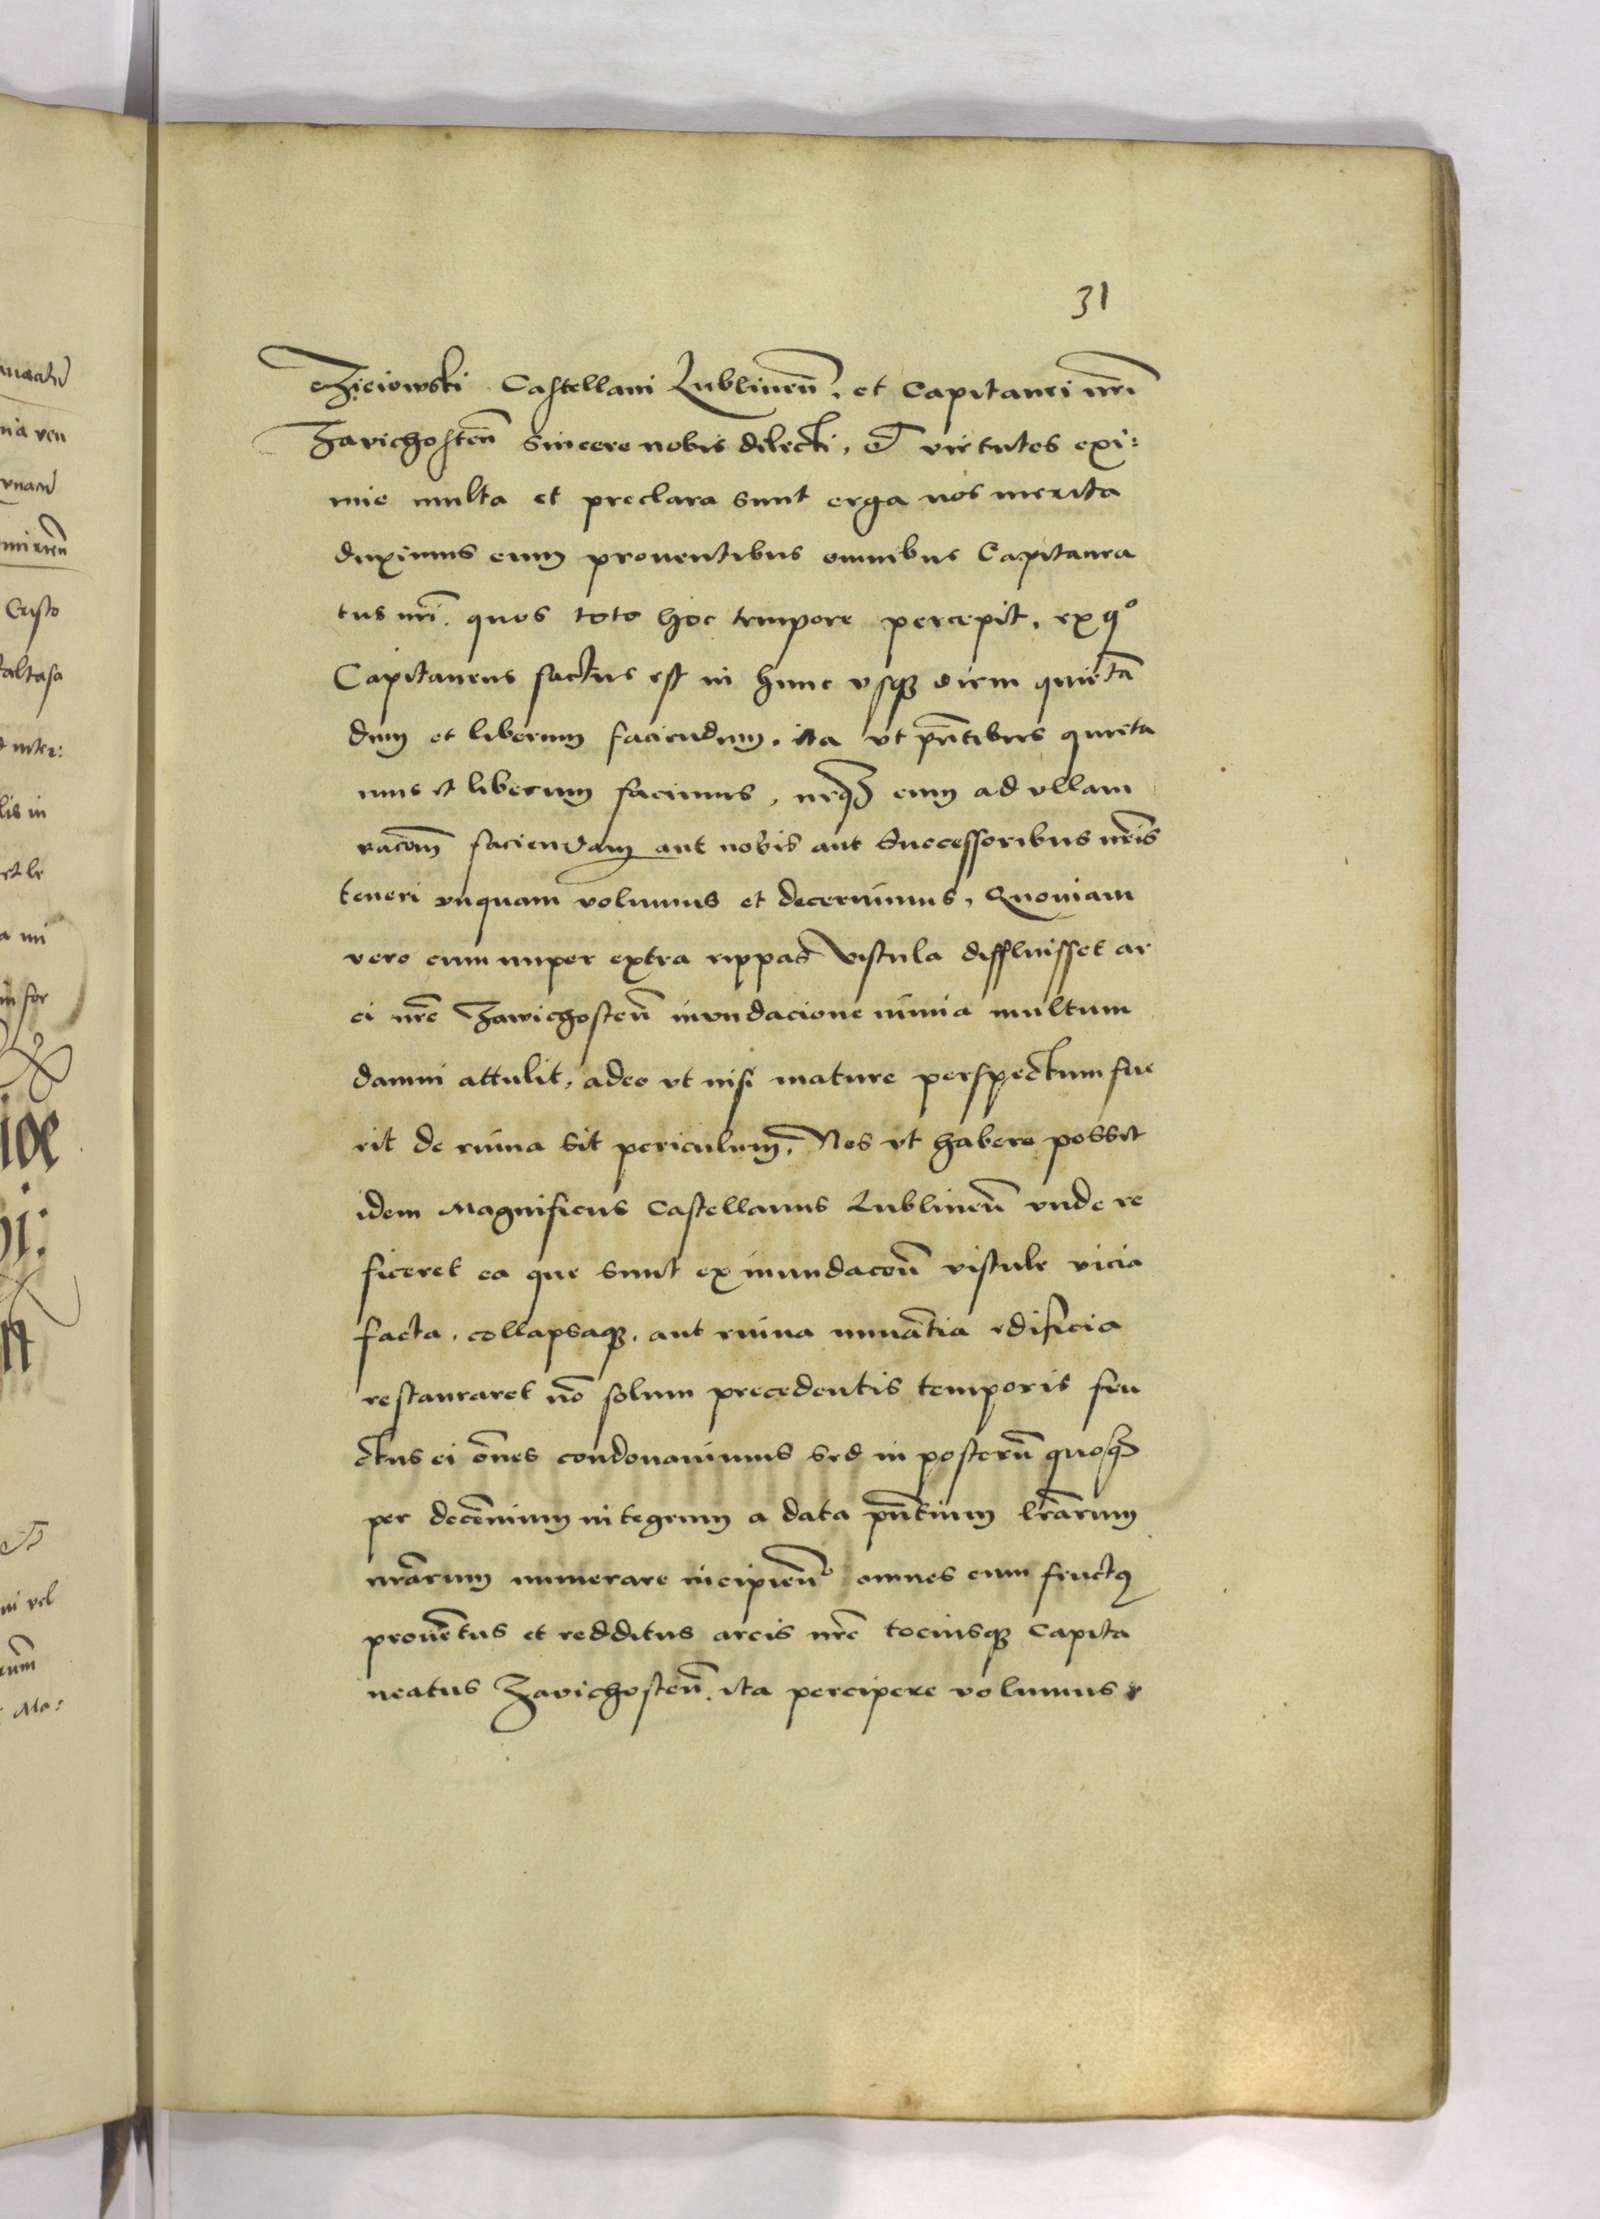 31
Maciejowski Castellani Lublineñ. et Capitanei nri
Zavichosteñ sincere nobis dilecti, et virtutes exi:
mie multa et preclara sunt erga nos merita
duximus eum proventibus omnibus Capitanea
tus nri. quos toto hoc tempore percepit, ex qº
Capitaneus factus est in hunc vsq diem quieta
dum et liberum faciendum. ita vt pñtibus quieta
mus et liberum facimus, neq eum ad vllam
racõm faciendam aut nobis aut Successoribus nris
teneri vnquam volumus et decernimus, Quoniam
vero cum nuper extra rippas Vistula diffluisset ar
ci nre Zawichosteñ invndacione nimia multum
damni attulit, adeo vt nisi mature perspectum fue
rit de ruina sit periculum, Nos vt habere possit
idem Magnificus Castellanus Lublineñ vnde re
ficeret ea que sunt ex inundacoñ vistule vicia
facta, collapsaq. aut ruina minãtia edificia
restauraret nõ solum precedentis temporis fru
ctus ei õnes condonavimus sed in posterũ quoq
per decẽnium integrum a data pñtium lrarum
nrarum numerare incipieñ omnes eum fructq
provẽtus et redditus arcis nre tociusq Capita
neatus Zavichosteñ. ita percipere volumus